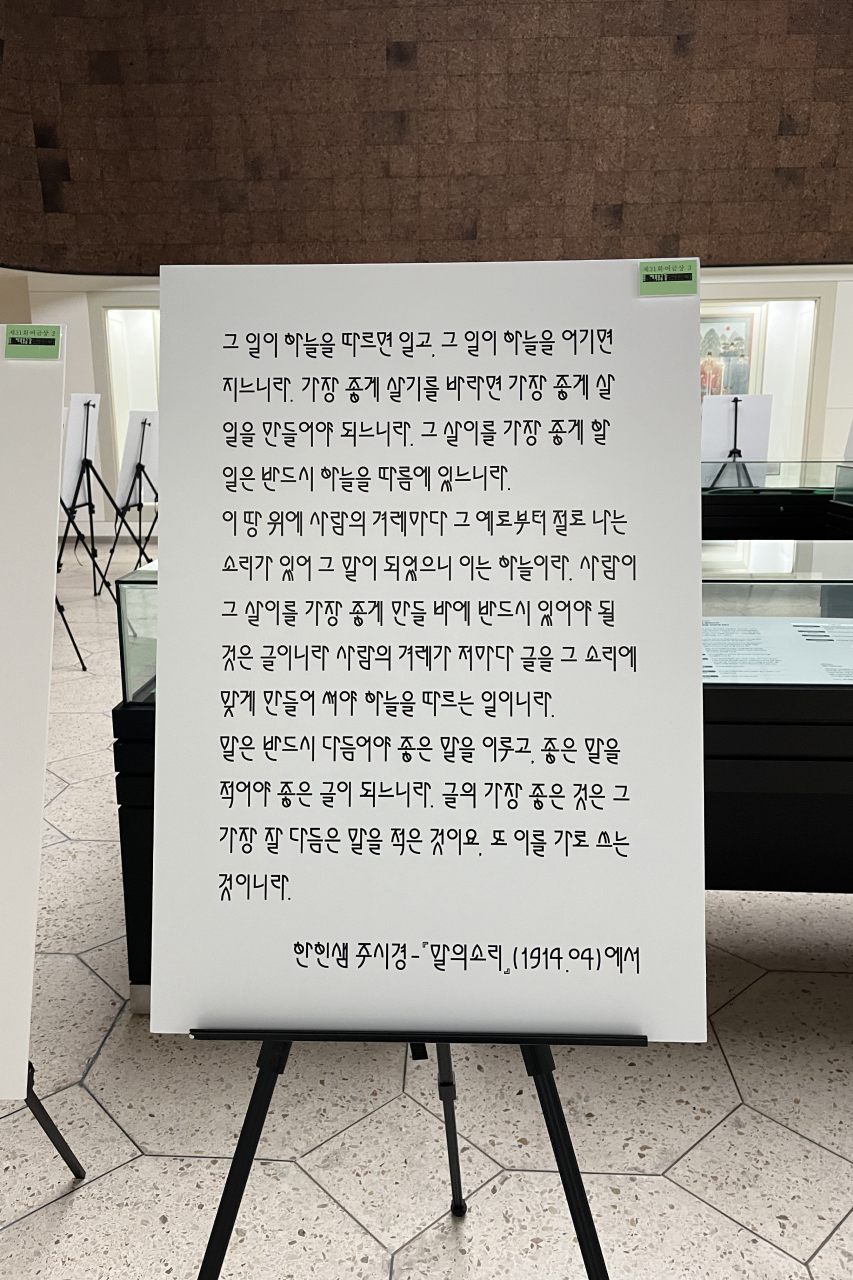 제31회 버금상 3
제31회 버금상 2
그 일이 하늘을 따르면 일고, 그 일이 하늘을 어기면
지느니라. 가장 좋게 살기를 바라면 가장 좋게 살
일을 만들어야 되느니라. 그 살이를 가장 좋게 할
일은 반드시 하늘을 따름에 있느니라.
이 땅 위에 사람의 겨레마다 그 예로부터 절로 나는
소리가 있어 그 말이 되었으니 이는 하늘이라. 사람이
그 살이를 가장 좋게 만들 바에 반드시 있어야 될
것은 글이니라 사람의 겨레가 저마다 글을 그 소리에
맞게 만들어 써야 하늘을 따르는 일이니라.
말은 반드시 다듬어야 좋은 말을 이루고, 좋은 말을
적어야 좋은 글이 되느니라. 글의 가장 좋은 것은 그
가장 잘 다듬은 말을 적은 것이요, 또 이를 가로 쓰는
것이니라.
한힌샘 주시경-『말의소리』(1914.04)에서